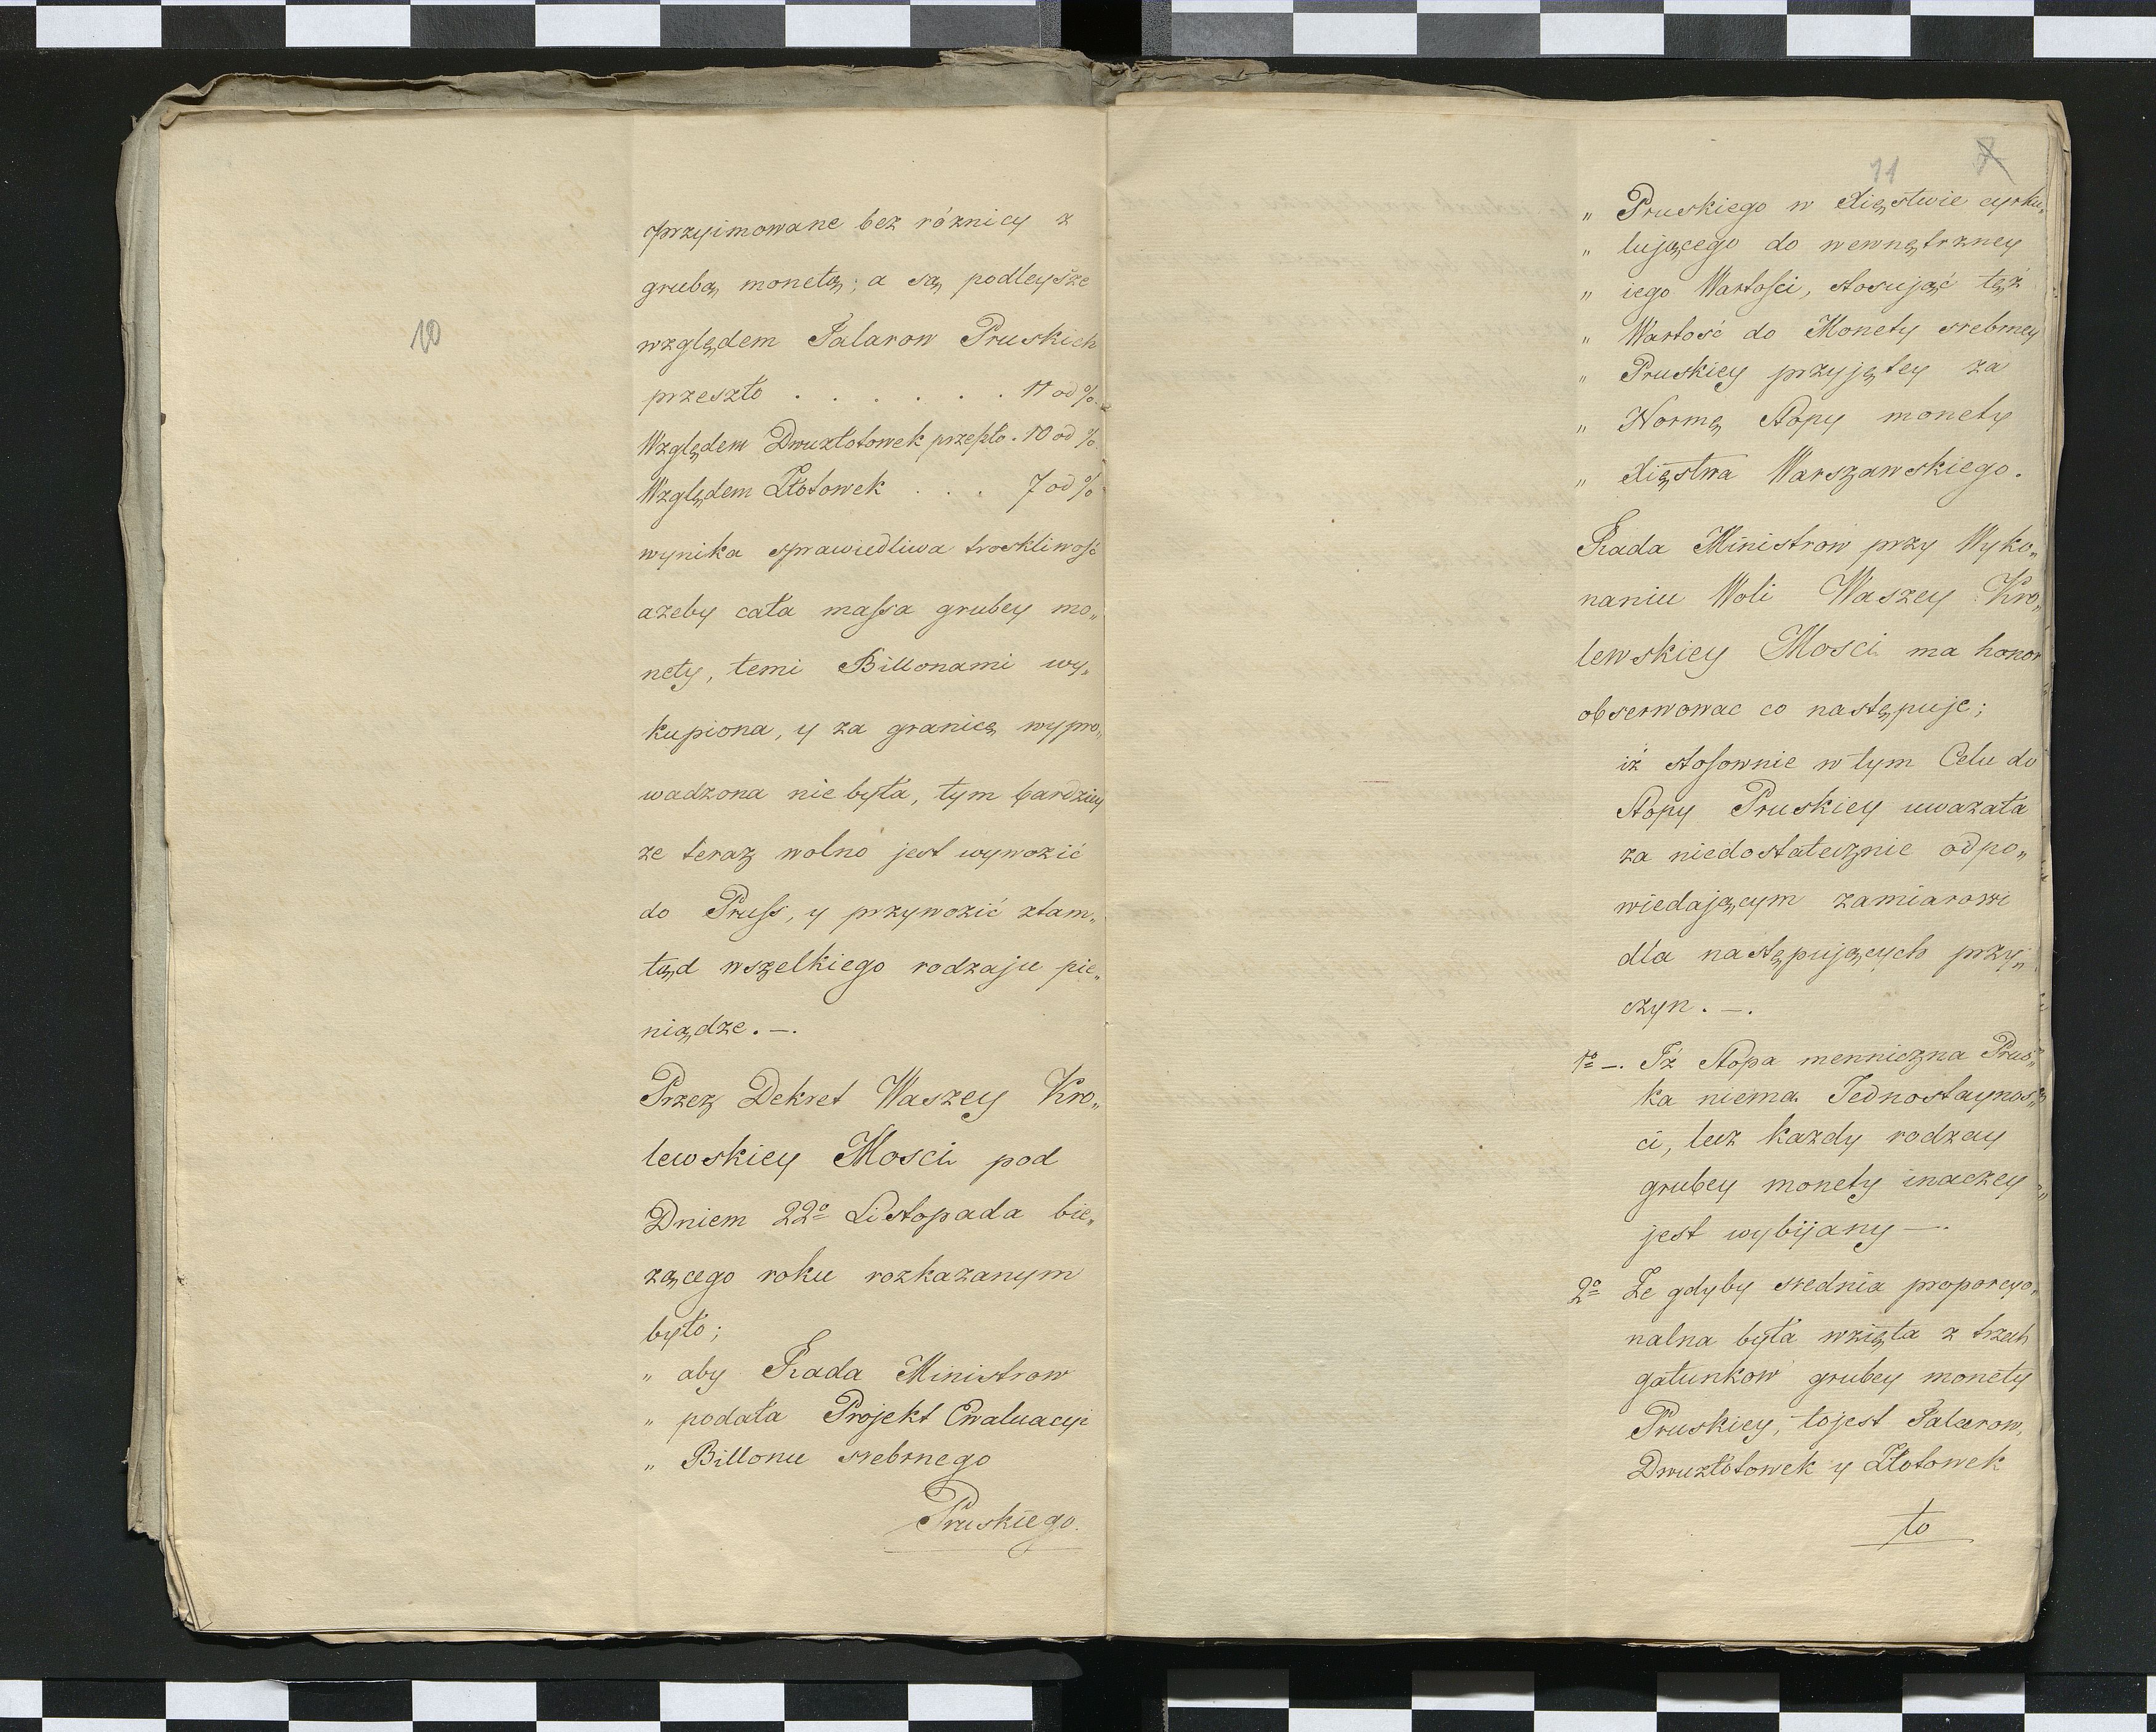 10
przyimowane bez różnicy z
grubą monetą; a są podleysze
względem Talarow Pruskich
przeszło . . . . . . 11 od %.
Względem Dwuzłotowek przeszło . 10 od %.
Względem Złotowek . . . 7 od %
wynika sprawiedliwa troskliwość
azeby cała massa grubey mo„
nety, temi Billonami wy„
kupiona, y za granicę wypro„
wadzona nie była, tym bardziey
ze teraz wolno jest wywozić
do Pruss, y przywozić ztam„
tąd wszelkiego rodzaju pie„
niądze. —.
Przez Dekret Waszey Kro„
lewskiey Mosci pod
Dniem 22º Listopada bie„
zącego roku rozkazanym
było;
„ aby Rada Ministrow
„ podała Projekt Ewaluacyi
„ Billonu srebrnego
Pruskiego.
11
„ Pruskiego w Xięstwie cyrku„
„ lującego do wewnętrzney
„ iego Wartości, stosując tęż
„ Wartość do Monety srebrney
„ Pruskiey przyjętey za
„ Normę Stopy monety
„ Xięstwa Warszawskiego.
Rada Ministrow przy Wyko„
naniu Woli Waszey Kro„
lewskiey Mosci ma honor
obserwowac co następuje;
iż stosownie w tym Celu do
Stopy Pruskiey uwazała
za niedostatecznie odpo„
wiedającym zamiarowi
dla następujących przy„
czyn. —.
1º —. Iż Stopa menniczna Prus„
ka niema Jednostaynos„
ci, lecz kazdy rodzay
grubey monety inaczey
jest wybijany —.
2º Ze gdyby srednia proporcyo„
nalna była wzięta z trzech
gatunkow grubey monety
Pruskiey, to jest Talarow,
Dwuzłotowek y Złotowek
to